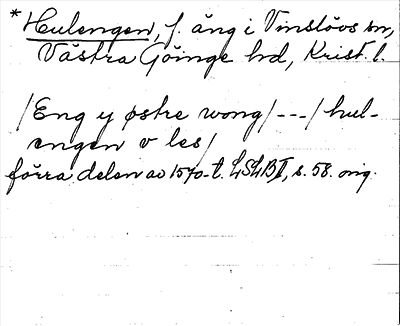 * Hulengen, f. äng i Vinslövs sn,
Västra Göinge hd, Krist. l.
/Eng y østre wong/---/hul-
engen v les/
förra delen av 1570-t. LSLB II, s. 58. orig.